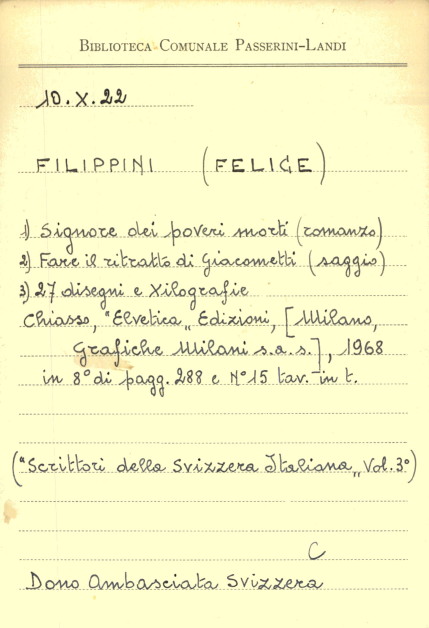 BIBLIOTECA COMUNALE PASSERINI-LANDI
10.X.22
FILIPPINI (FELICE)
1) Signore dei poveri morti (romanzo)
2) Fare il ritratto di Giacometti (saggio)
3) 27 disegni e Xilografie
Chiasso, "Elvetica„ Edizioni, [Milano,
Grafiche Milani s.a.s.], 1968
in 8° di pagg. 288 e N° 15 tav. in t.
("Scrittori della Svizzera Italiana„ Vol. 3°)
C
Dono Ambasciata Svizzera